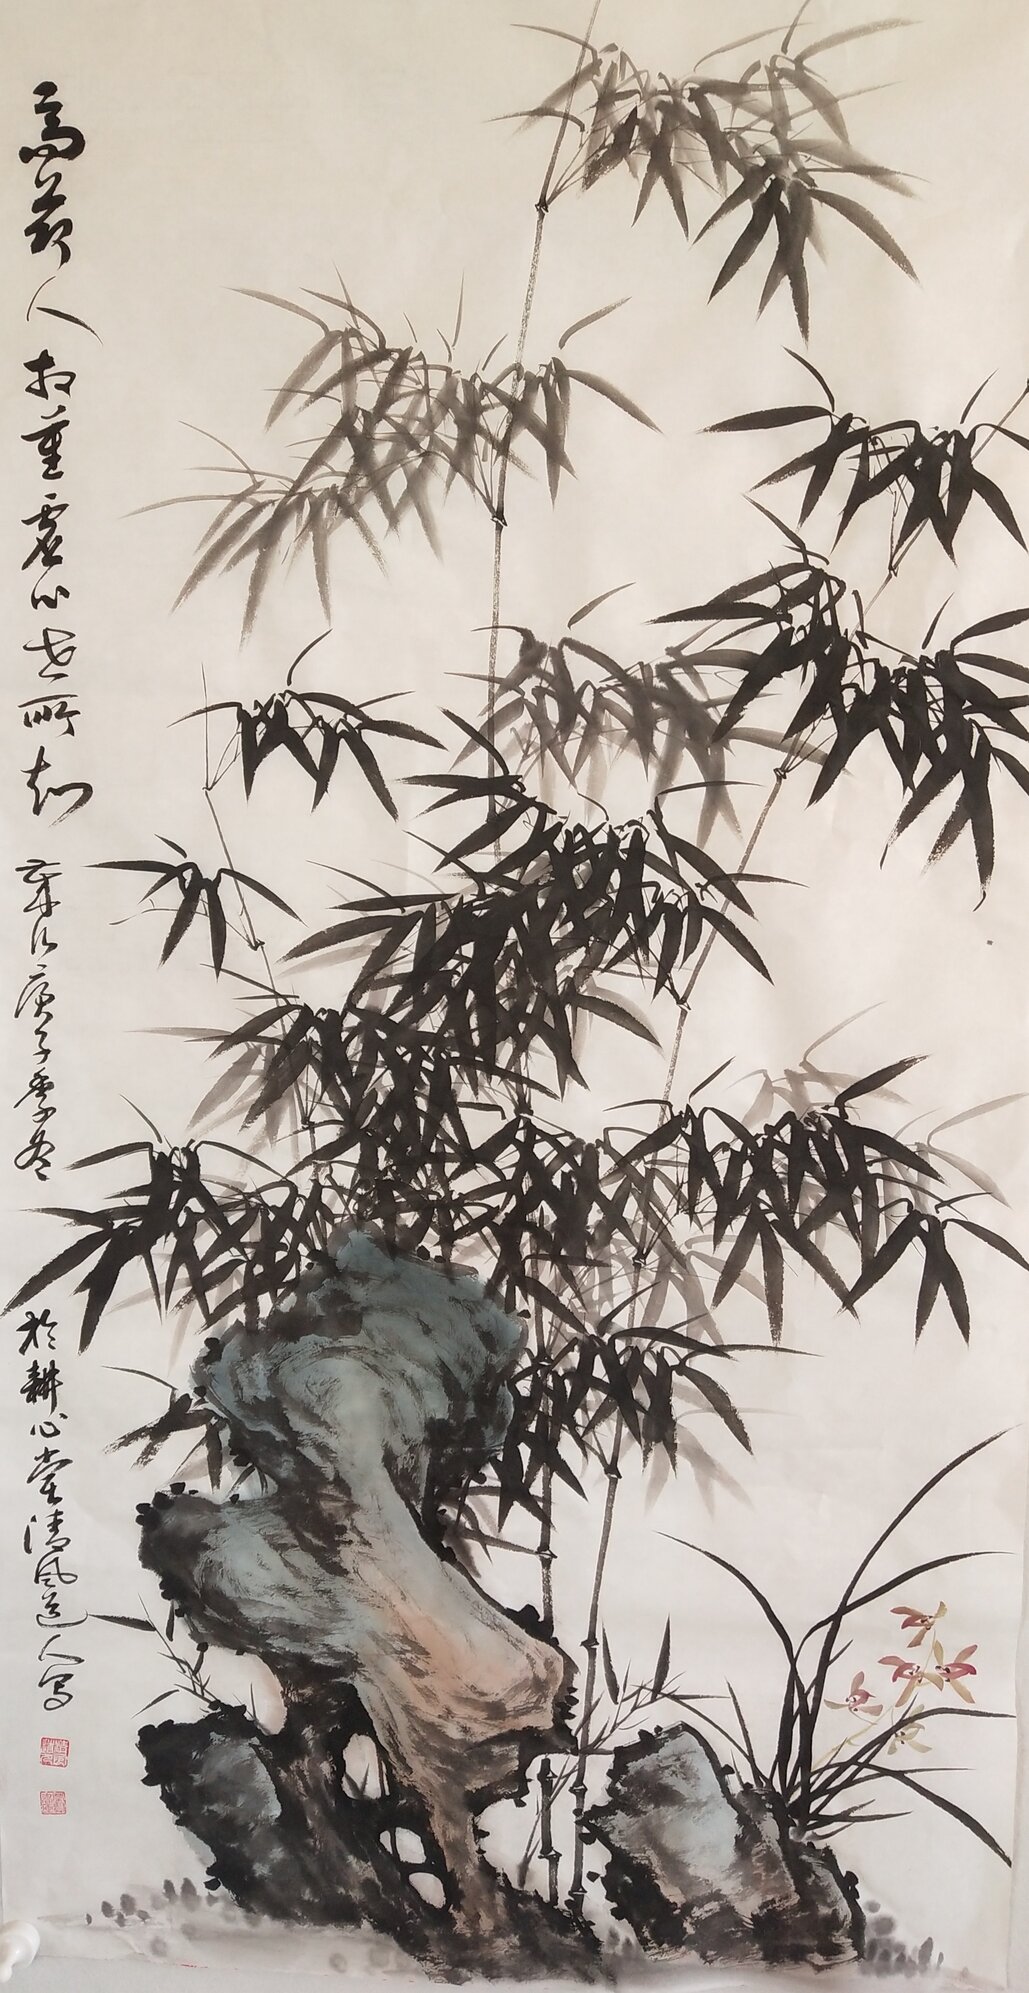 高节人相重虚心世所知 岁次庚子季冬 于耕心堂清风道人写